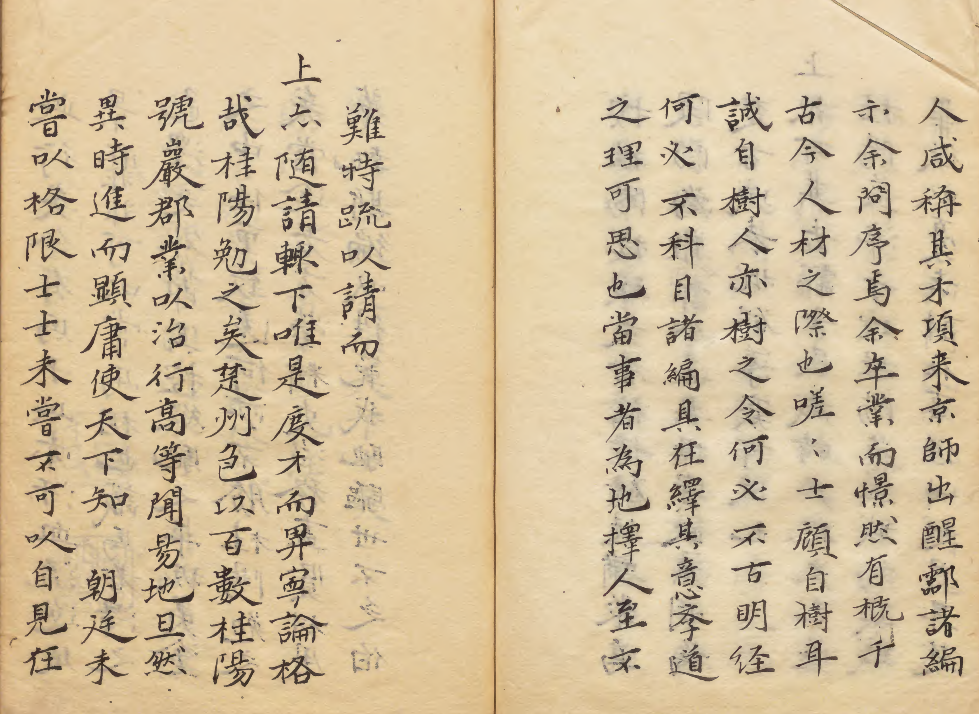 人咸稱其才項来京師出醒鄠諸編
示余問序焉余卒業而憬然有概于
古今人材之際也嗟〻士顧自樹耳
誠自樹人亦樹之令何必不古明経
何必不科目諸編具在繹其意李道
之理可思也當事者為地擇人至不
難特疏以請而
上亦随請輙下唯是度才而畀寧論格
哉桂陽勉之矣楚州邑以百數桂陽
號嚴郡業以治行高等聞易地旦然
異時進而顯庸使天下知 朝廷未
嘗以格限士士未嘗不可以自見在